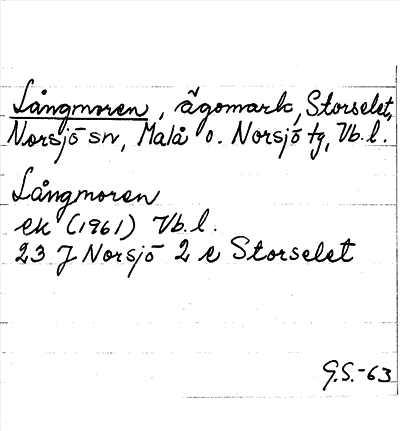 Långmoren, ägomark, Storselet,
Norsjö sn, Malå o. Norsjö tg, Vb.l.
Långmoren
ek (1961) Vb.l.
23 J Norsjö 2 e Storselet
G.S.-63